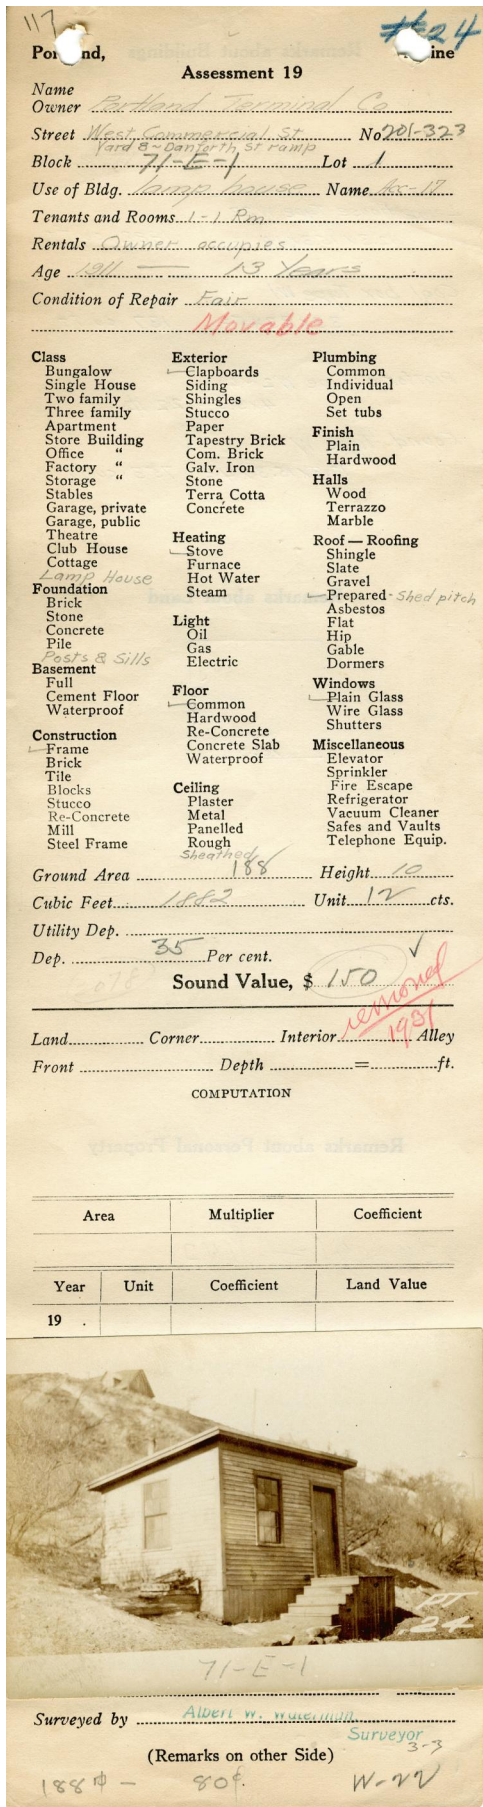 117 #24
Portland, Maine
Assessment 19
Name
Owner Portland Terminal Co
Street West Commercial St. No 201-323
Yard 8 - Danforth St ramp
Block 71-E-1 Lot 1
Use of Bldg. lamp house Name
Tenants and Rooms 1-1 Rm
Rentals Owner occupies
Age 1911 — 13 Years
Condition of Repair Fair
Movable
Class
Bungalow
Single House
Two family
Three family
Apartment
Store Building
Office "
Factory "
Storage "
Stables
Garage, private
Garage, public
Theatre
Club House
Cottage
Lamp House
Foundation
Brick
Stone
Concrete
Pile
Posts & Sills
Basement
Full
Cement Floor
Waterproof
Construction
Frame
Brick
Tile
Blocks
Stucco
Re-Concrete
Mill
Steel Frame
Exterior
Clapboards
Siding
Shingles
Stucco
Paper
Tapestry Brick
Com. Brick
Galv. Iron
Stone
Terra Cotta
Concrete
Heating
Stove
Furnace
Hot Water
Steam
Light
Oil
Gas
Electric
Floor
Common
Hardwood
Re-Concrete
Concrete Slab
Waterproof
Ceiling
Plaster
Metal
Panelled
Rough
Sheathed
Plumbing
Common
Individual
Open
Set tubs
Finish
Plain
Hardwood
Halls
Wood
Terrazzo
Marble
Roof — Roofing
Shingle
Slate
Gravel
Prepared - Shed pitch
Asbestos
Flat
Hip
Gable
Dormers
Windows
Plain Glass
Wire Glass
Shutters
Miscellaneous
Elevator
Sprinkler
Fire Escape
Refrigerator
Vacuum Cleaner
Safes and Vaults
Telephone Equip.
Ground Area 188 Height 10
Cubic Feet 1882 Unit 12 cts.
Utility Dep.
Dep. 35 Per cent.
Sound Value, $ 150
removed
1931
Land Corner Interior Alley
Front Depth = ft.
COMPUTATION
Area Multiplier Coefficient
Year Unit Coefficient Land Value
19 .
PT
24
71-E-1
Surveyed by Albert W. Waterman
Surveyor
3-3
(Remarks on other Side)
188 ₵ - 80¢. W-22